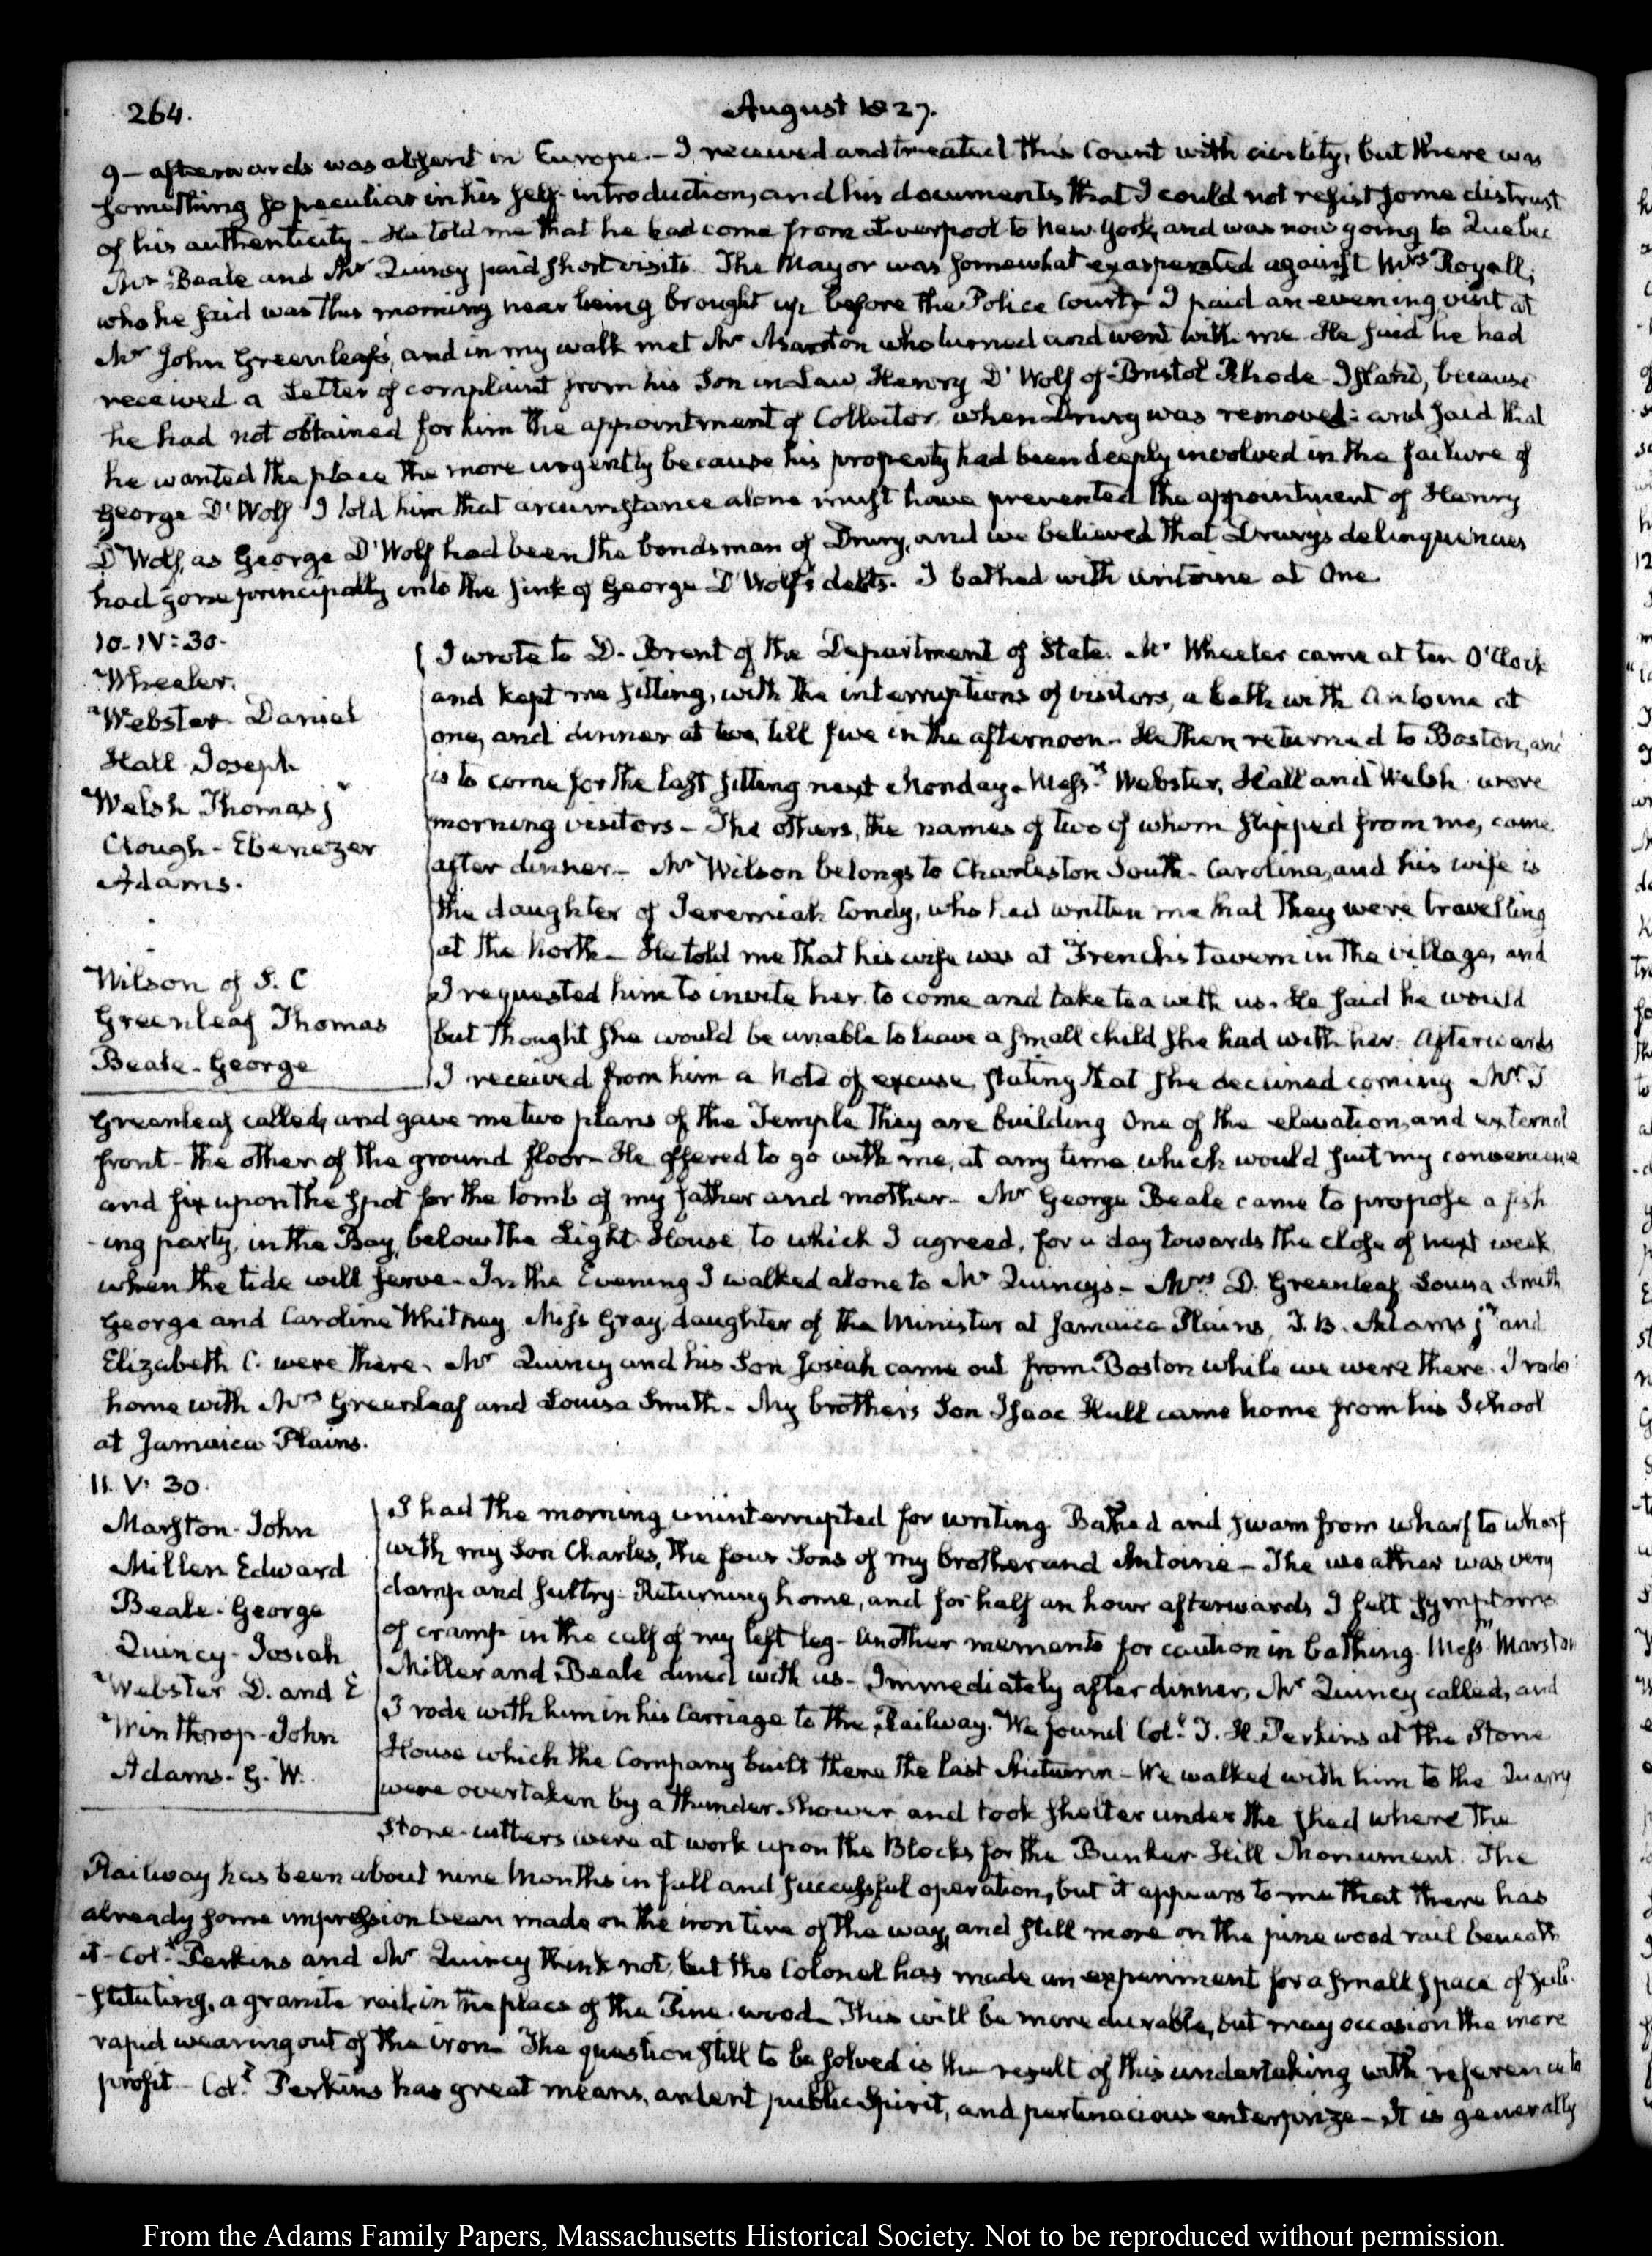 264.
August 1827.
9 — afterwards was absent in Europe. — I received and treated this Count with civility, but there was
something so peculiar in his self-introduction, and his documents that I could not resist some distrust
of his authenticity — He told me that he had come from Liverpool to New-York, and was now going to Quebec
Mr Beale and Mr Quincy paid short visits. The Mayor was somewhat exasperated against Mrs Royall;
who he said was this morning near being brought up before the Police Court — I paid an evening visit at
Mr John Greenleaf's, and in my walk met Mr Marston who turned and went with me. He said he had
received a Letter of complaint from his Son in Law Henry D'Wolf of Bristol Rhode-Island, because
he had not obtained for him the appointment of Collector, when Drury was removed: and said that
he wanted the place the more urgently because his property had been deeply involved in the failure of
George D'Wolf I told him that circumstance alone must have prevented the appointment of Henry
D'Wolf, as George D'Wolf had been the bondsman of Drury, and we believed that Drury's delinquencies
had gone principally into the sink of George D'Wolf's debts. I bathed with Antoine at One.
10. IV: 30.
Wheeler.
Webster Daniel
Hall Joseph
Welsh Thomas jr
Clough-Ebenezer
Adams.
Wilson of S. C
Greenleaf Thomas
Beale-George
I wrote to D. Brent of the Department of State. Mr Wheeler came at ten O'Clock
and kept me sitting, with the interruptions of visitors, a bath with Antoine at
one, and dinner at two, till five in the afternoon — He then returned to Boston, and
is to come for the last sitting next Monday. Messrs Webster, Hall and Welsh were
morning visitors — The others, the names of two of whom slipped from me, came
after dinner — Mr Wilson belongs to Charleston South-Carolina, and his wife is
the daughter of Jeremiah Condy, who had written me that they were travelling
at the North — He told me that his wife was at French's tavern in the village, and
I requested him to invite her to come and take tea with us. He said he would
but thought she would be unable to leave a small child she had with her. Afterwards
I received from him a Note of excuse, stating that she declined coming Mr T
Greenleaf called, and gave me two plans of the Temple they are building One of the elevation, and external
front — the other of the ground floor — He offered to go with me, at any time which would suit my convenience
and fix upon the spot for the tomb of my father and mother — Mr George Beale came to propose a fish
-ing party, in the Bay, below the Light-House, to which I agreed, for a day towards the close of next week,
when the tide will serve — In the Evening I walked alone to Mr Quincy's — Mrs D. Greenleaf Louisa Smith
George and Caroline Whitney Miss Gray, daughter of the Minister at Jamaica Plains, T. B. Adams jr and
Elizabeth C. were there. Mr Quincy and his Son Josiah came out from Boston while we were there. I rode
home with Mrs Greenleaf and Louisa Smith — My brother's Son Isaac Hull came home from his School
at Jamaica Plains.
11. V: 30.
Marston-John
Miller Edward
Beale-George
Quincy-Josiah
Webster D. and E
Winthrop-John
Adams-G. W.
I had the morning uninterrupted for writing. Bathed and swam from wharf to wharf
with my Son Charles, the four Sons of my brother and Antoine — The weather was very
damp and sultry — Returning home, and for half an hour afterwards, I felt symptoms
of cramp in the calf of my left leg — Another memento for caution in bathing. Messrs Marston
Miller and Beale dined with us — Immediately after dinner, Mr Quincy called, and
I rode with him in his Carriage to the Railway. We found Coll. T. H. Perkins at the Stone
House which the Company built there the last Autumn — We walked with him to the Quarry
were overtaken by a thunder-shower and took shelter under the shed where the
Stone-cutters were at work upon the Blocks for the Bunker-Hill Monument. The
Railway has been about nine Months in full and successful operation, but it appears to me that there has
already some impression been made on the iron tire of the way, and still more on the pine wood rail beneath
it — Coll. Perkins and Mr Quincy think not, but the Colonel has made an experiment for a small space of sub-
-stituting, a granite rail, in the place of the Pine-wood — This will be more durable, but may occasion the more
rapid wearing out of the iron. The question still to be solved is the result of this undertaking with reference to
profit — Coll. Perkins has great means, ardent public-spirit, and pertinacious enterprize — It is generally
From the Adams Family Papers, Massachusetts Historical Society. Not to be reproduced without permission.